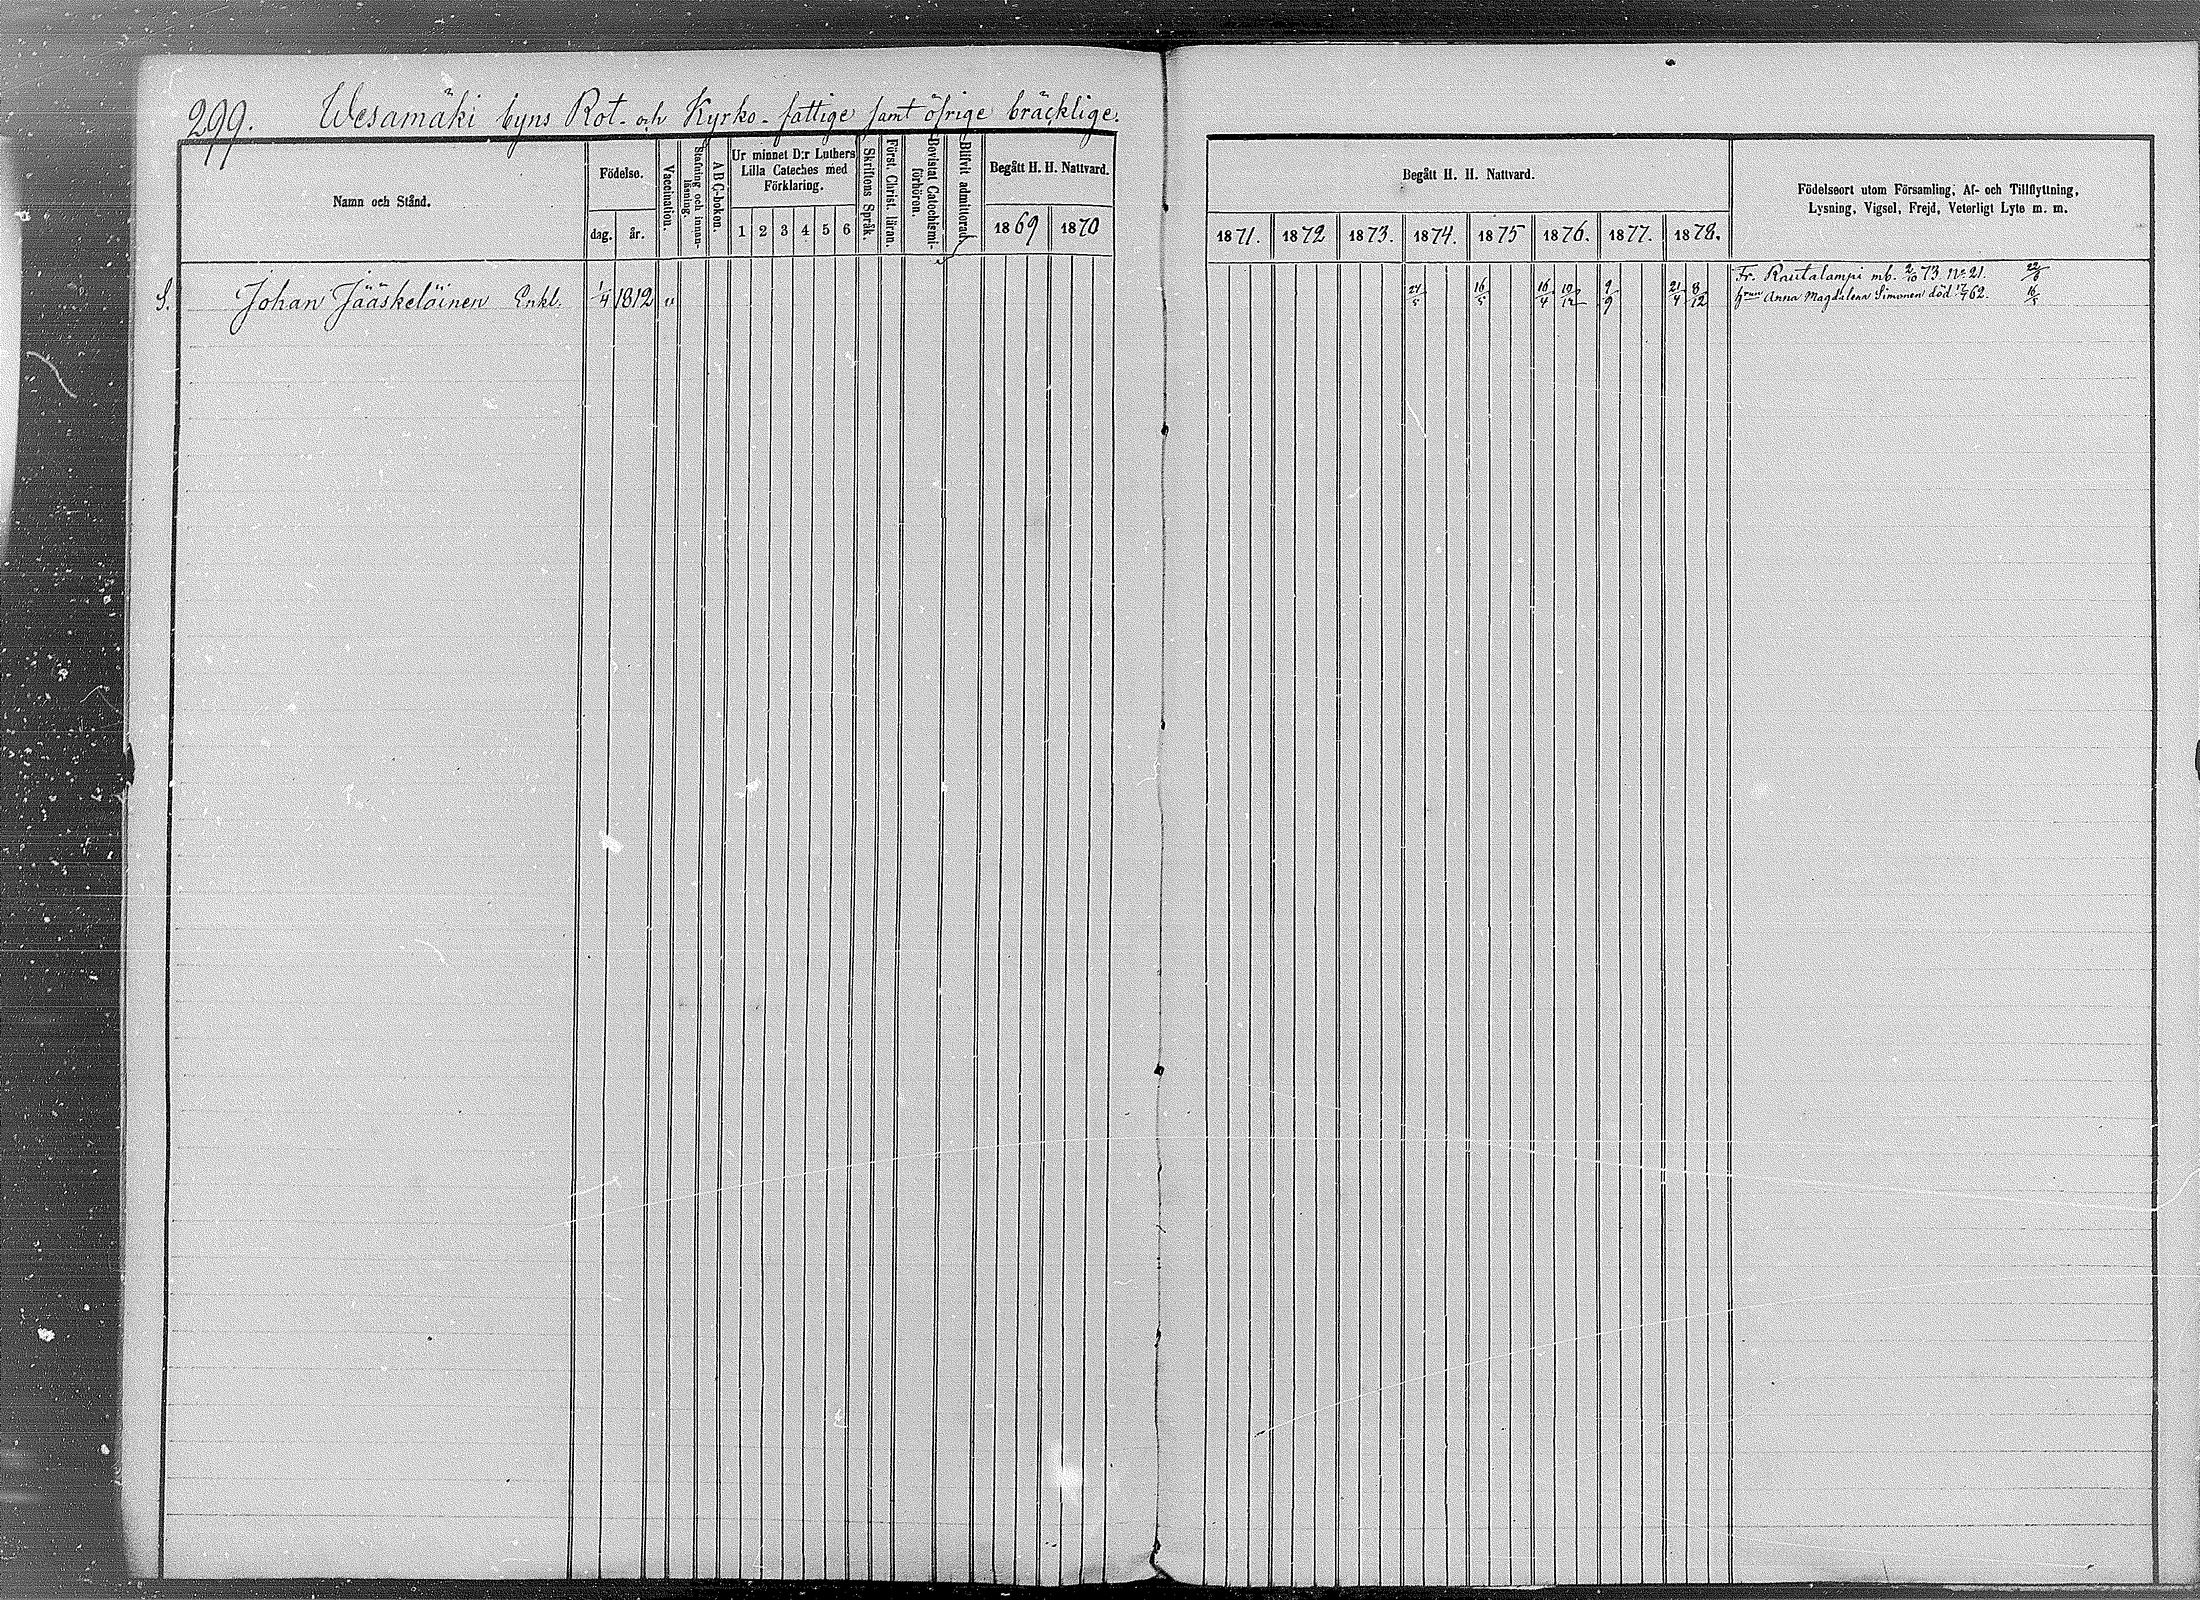 299. Wesamäki byns Rot- och Kyrko-fattige samt öfrige bräcklige.
Namn och Stånd.
Födelse.
dag. år.
Vaccination.
Stafning och innanläsning.
A B C-boken.
Ur minnet D:r Luthers
Lilla Cateches med
Förklaring.
1 2 3 4 5 6
Skriftens Språk.
Först. Christ. läran.
Bevistat Catechismiförhören.
Blifvit admitterad
Begått H. H. Nattvard.
1869 1870
Begått H. H. Nattvard.
1871. 1872 1873. 1874. 1875 1876. 1877. 1878.
Födelseort utom Församling, Af- och Tillflyttning,
Lysning, Vigsel, Frejd, Veterligt Lyte m. m.
S. Johan Jääskeläinen Enkl. 1/4 1812 v 24/5 16/5 16/4 10/12 9/9 21/4 8/12
Fr. Rautalampi mb. 2/10 73. No 21.
hrun Anna Magdalena Simonen död 62. 16/5